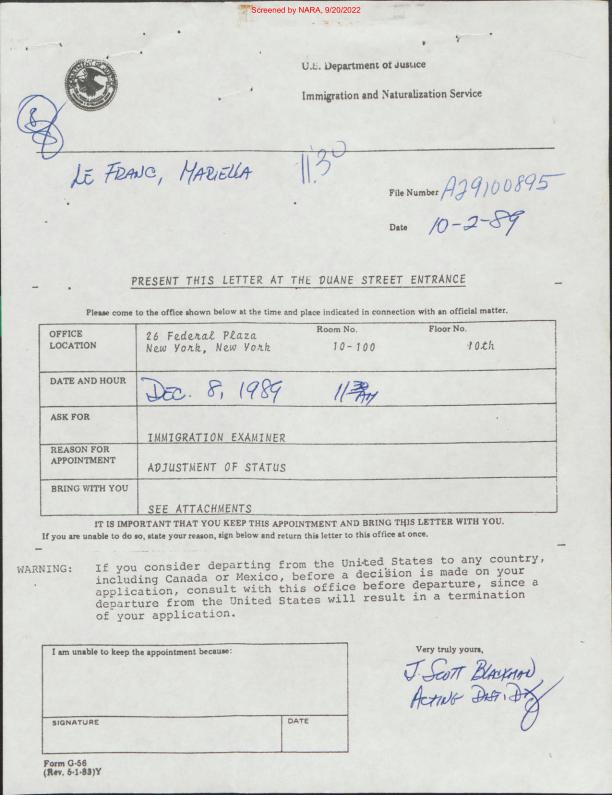 Screened by NARA, 9/20/2022
U.S. Department of Justice
Immigration and Naturalization Service
8
LE FRANC, MARIELLA
11:30
File Number A29100895
Date 10-2-89
PRESENT THIS LETTER AT THE DUANE STREET ENTRANCE
Please come to the office shown below at the time and place indicated in connection with an official matter.
OFFICE LOCATION
26 Federal Plaza
New York, New York
Room No.
10-100
Floor No.
10th
DATE AND HOUR
DEC. 8, 1989 11 30 AM
ASK FOR
IMMIGRATION EXAMINER
REASON FOR APPOINTMENT
ADJUSTMENT OF STATUS
BRING WITH YOU
SEE ATTACHMENTS
IT IS IMPORTANT THAT YOU KEEP THIS APPOINTMENT AND BRING THIS LETTER WITH YOU.
If you are unable to do so, state your reason, sign below and return this letter to this office at once.
WARNING: If you consider departing from the United States to any country,
including Canada or Mexico, before a decision is made on your
application, consult with this office before departure, since a
departure from the United States will result in a termination
of your application.
I am unable to keep the appointment because:
SIGNATURE
DATE
Very truly yours,
J. SCOTT BLACKMAN
ACTING DIST. D
Form G-56
(Rev. 5-1-83)Y